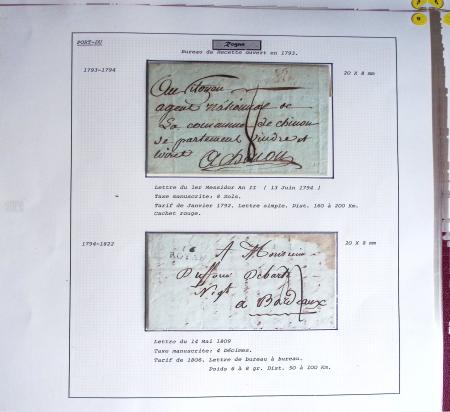 PORT-DU
Royan
Bureau de Recette ouvert en 1793.
1793-1794
20 X 8 mm
Au Citoyen
agent national de
La commune de chinon
departement indre et
Loire
a chinon
Lettre du 1er Messidor An II ( 13 Juin 1794 )
Taxe manuscrite: 8 Sols.
Tarif de Janvier 1792. Lettre simple. Dist. 160 à 200 Km.
Cachet rouge.
1794-1822
20 X 8 mm
16
ROYAN
A Monsieur
Négt
a Bordeaux
Lettre du 14 Mai 1809
Taxe manuscrite: 4 Décimes.
Tarif de 1806. Lettre de bureau à bureau.
Poids 6 à 8 gr. Dist. 50 à 100 Km.